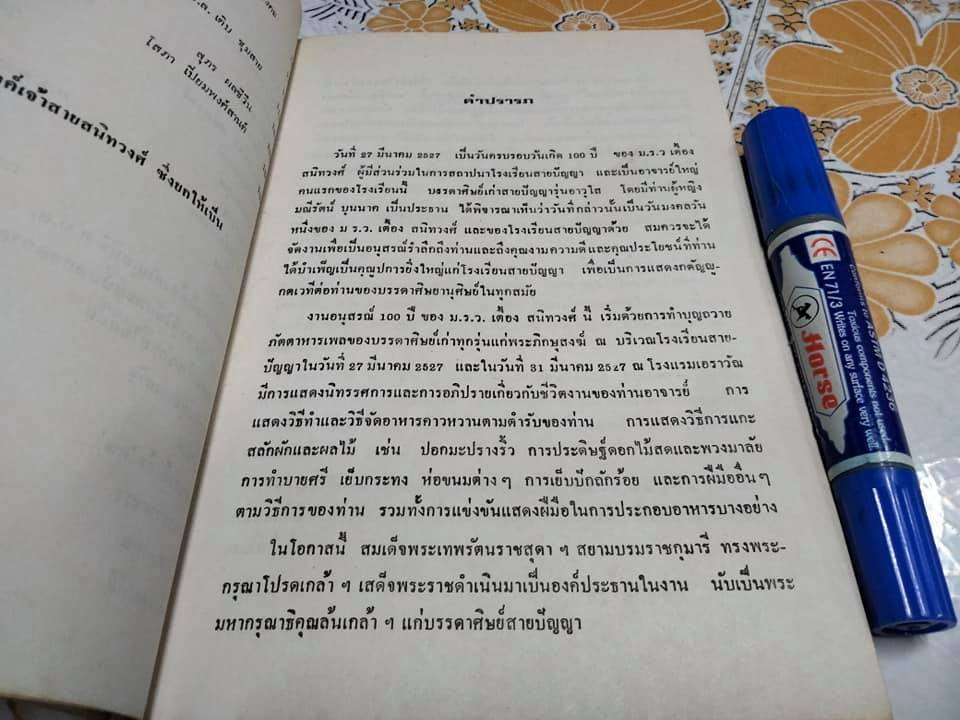 ส. เติบ ชุมสาย
สุภร ผลชีวิน
โสภา เปี่ยมพงศ์สานต์
ค์เจ้าสายสนิทวงศ์ ซึ่งยกให้เป็น
คำปรารภ
วันที่ 27 มีนาคม 2527 เป็นวันครบรอบวันเกิด 100 ปี ของ ม.ร.ว เตื้อง
สนิทวงศ์ ผู้มีส่วนร่วมในการสถาปนาโรงเรียนสายปัญญา และเป็นอาจารย์ใหญ่
คนแรกของโรงเรียนนี้ บรรดาศิษย์เก่าสายปัญญารุ่นอาวุโส โดยมีท่านผู้หญิง
มณีรัตน์ บุนนาค เป็นประธาน ได้พิจารณาเห็นว่าวันที่กล่าวนั้นเป็นวันมงคลวัน
หนึ่งของ ม ร.ว. เตื้อง สนิทวงศ์ และของโรงเรียนสายปัญญาด้วย สมควรจะได้
จัดงานเพื่อเป็นอนุสรณ์รำลึกถึงท่านและถึงคุณงามความดีและคุณประโยชน์ที่ท่าน
ได้บำเพ็ญเป็นคุณูปการยิ่งใหญ่แก่โรงเรียนสายปัญญา เพื่อเป็นการแสดงกตัญญู-
กตเวทีต่อท่านของบรรดาศิษยานุศิษย์ในทุกสมัย
งานอนุสรณ์ 100 ปี ของ ม.ร.ว. เตื้อง สนิทวงศ์ นี้ เริ่มด้วยการทำบุญถวาย
ภัตตาหารเพลของบรรดาศิษย์เก่าทุกรุ่นแก่พระภิกษุสงฆ์ ณ บริเวณโรงเรียนสาย-
ปัญญาในวันที่ 27 มีนาคม 2527 และในวันที่ 31 มีนาคม 2527 ณ โรงแรมเอราวัณ
มีการแสดงนิทรรศการและการอภิปรายเกี่ยวกับชีวิตงานของท่านอาจารย์ การ
แสดงวิธีทำและวิธีจัดอาหารคาวหวานตามตำรับของท่าน การแสดงวิธีการแกะ
สลักผักและผลไม้ เช่น ปอกมะปรางริ้ว การประดิษฐ์ดอกไม้สดและพวงมาลัย
การทำบายศรี เย็บกระทง ห่อขนมต่าง ๆ การเย็บปักถักร้อย และการฝีมืออื่น ๆ
ตามวิธีการของท่าน รวมทั้งการแข่งขันแสดงฝีมือในการประกอบอาหารบางอย่าง
ในโอกาสนี้ สมเด็จพระเทพรัตนราชสุดา ฯ สยามบรมราชกุมารี ทรงพระ-
กรุณาโปรดเกล้า ฯ เสด็จพระราชดำเนินมาเป็นองค์ประธานในงาน นับเป็นพระ
มหากรุณาธิคุณล้นเกล้า ฯ แก่บรรดาศิษย์สายปัญญา
CE
EN 71/3
ASTM D 4236
Todous components not used.
Writes on any surface very well
Horse